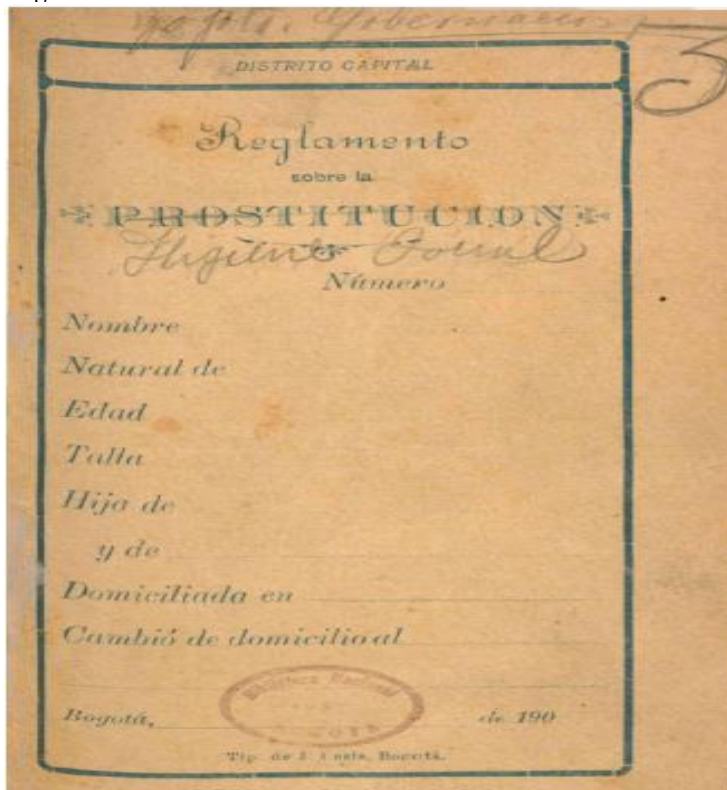 Bogotá. Gobernación
DISTRITO CAPITAL
3
Reglamento
sobre la
PROSTITUCION
Higiene Social
Número
Nombre
Natural de
Edad
Talla
Hija de
y de
Domiciliada en
Cambió de domicilio al
Biblioteca Nacional
Bogotá, de 190
Tip. de Bogotá.